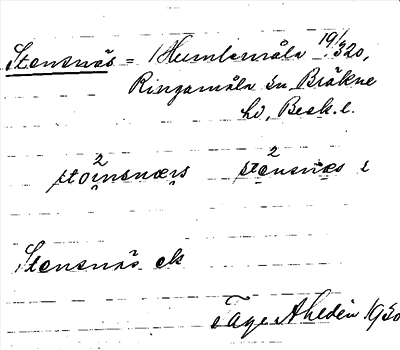 Stensnäs = 1 Humlamåla 19/320,
Ringamåla sn Bräkne
hd, Blek. l.
2 2
stoinsnærs stensnæs l
Stensnäs ek
Tage Ahldén 1950